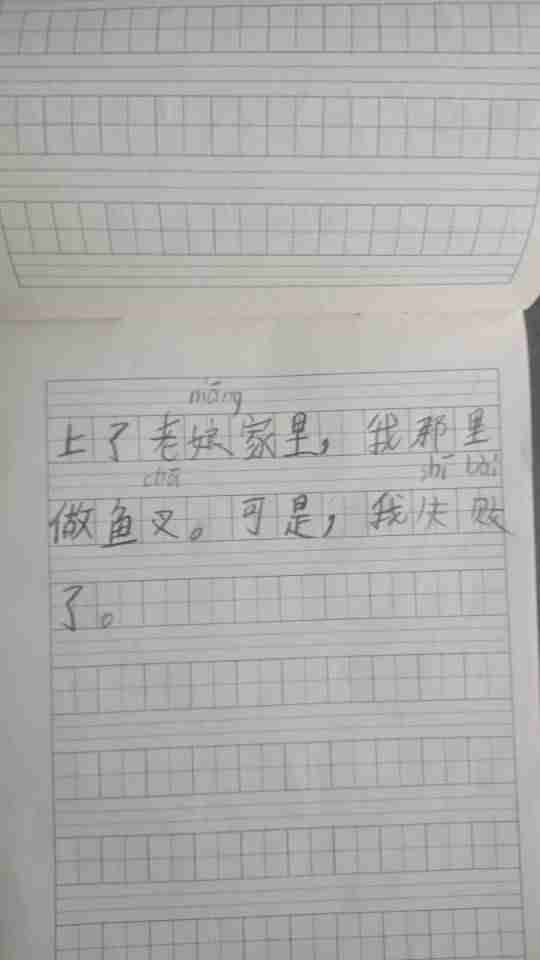 māng
上了老娘家里，我那里
chā shī bài
做鱼叉。可是，我失败
了。